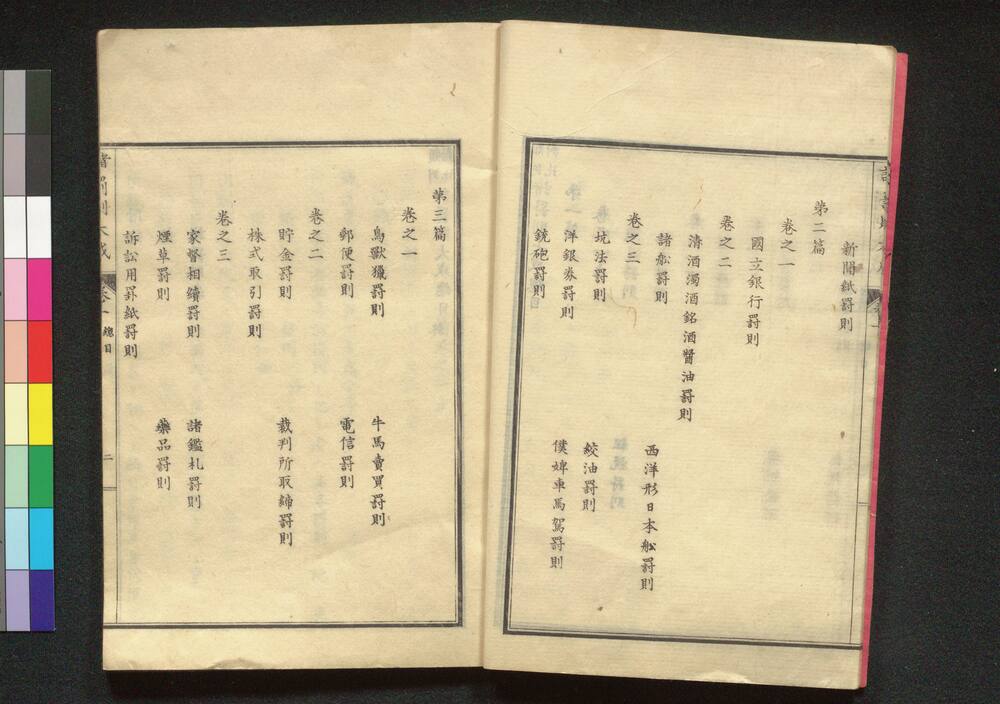 新聞紙罸則
第二篇
卷之一
國立銀行罸則
卷之二
淸酒濁酒銘酒醬油罸則
諸舩罸則
西洋形日本舩罸則
卷之三
坑法罸則
絞油罸則
洋銀券罸則
僕婢車馬駕罸則
銃砲罸則
第三篇
卷之一
鳥獸獵罸則
牛馬賣買罸則
郵便罸則
電信罸則
卷之二
貯金罸則
裁判所取締罸則
株式取引罸則
卷之三
家督相續罸則
諸鑑札罸則
煙草罸則
藥品罸則
訴訟用罫紙罸則
諸罰則大成
卷一
總目
二